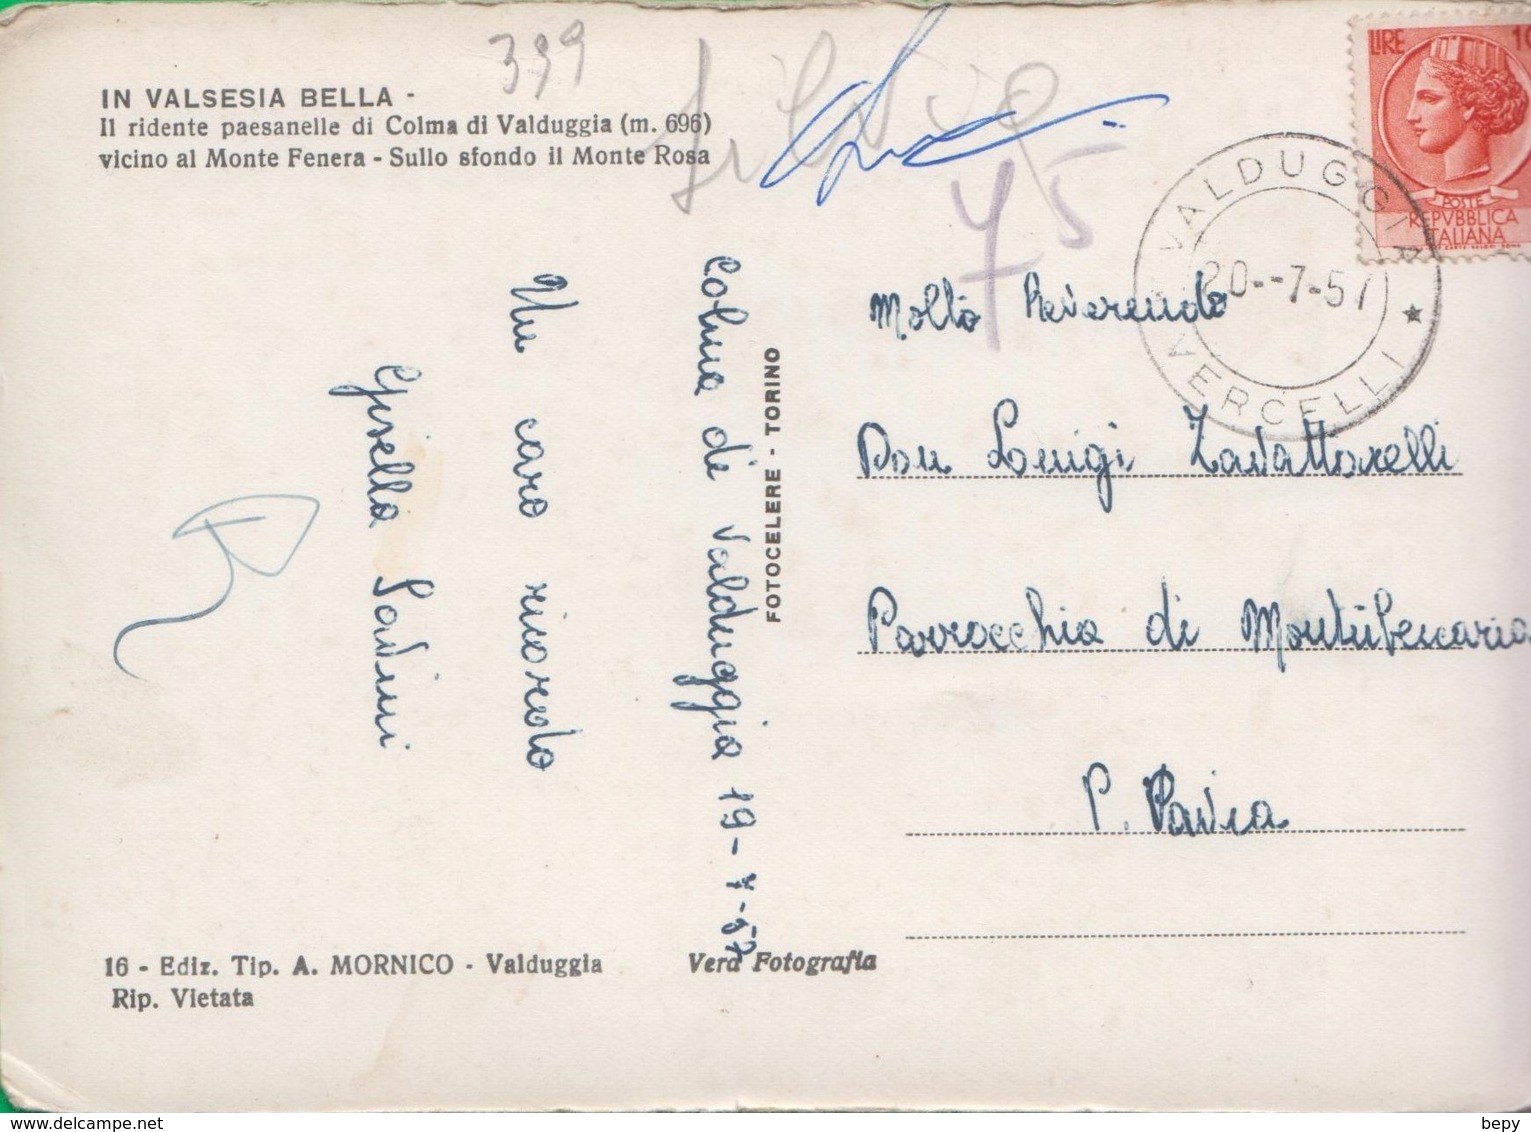 399
IN VALSESIA BELLA -
Il ridente paesanelle di Colma di Valduggia (m. 696)
vicino al Monte Fenera - Sullo sfondo il Monte Rosa
LIRE 10
POSTE
REPVBBLICA
ITALIANA
VALDUGGIA
20--7-57
VERCELLI
75
Colma di Valduggia 19-7-57
Un caro ricordo
Gisella Savini
FOTOCELERE - TORINO
Molto Reverendo
Don Luigi Zavattarelli
Parrocchia di Montubeccaria
P. Pavia
16 - Ediz. Tip. A. MORNICO - Valduggia
Rip. Vietata
Vera Fotografia
www.delcampe.net
bepy